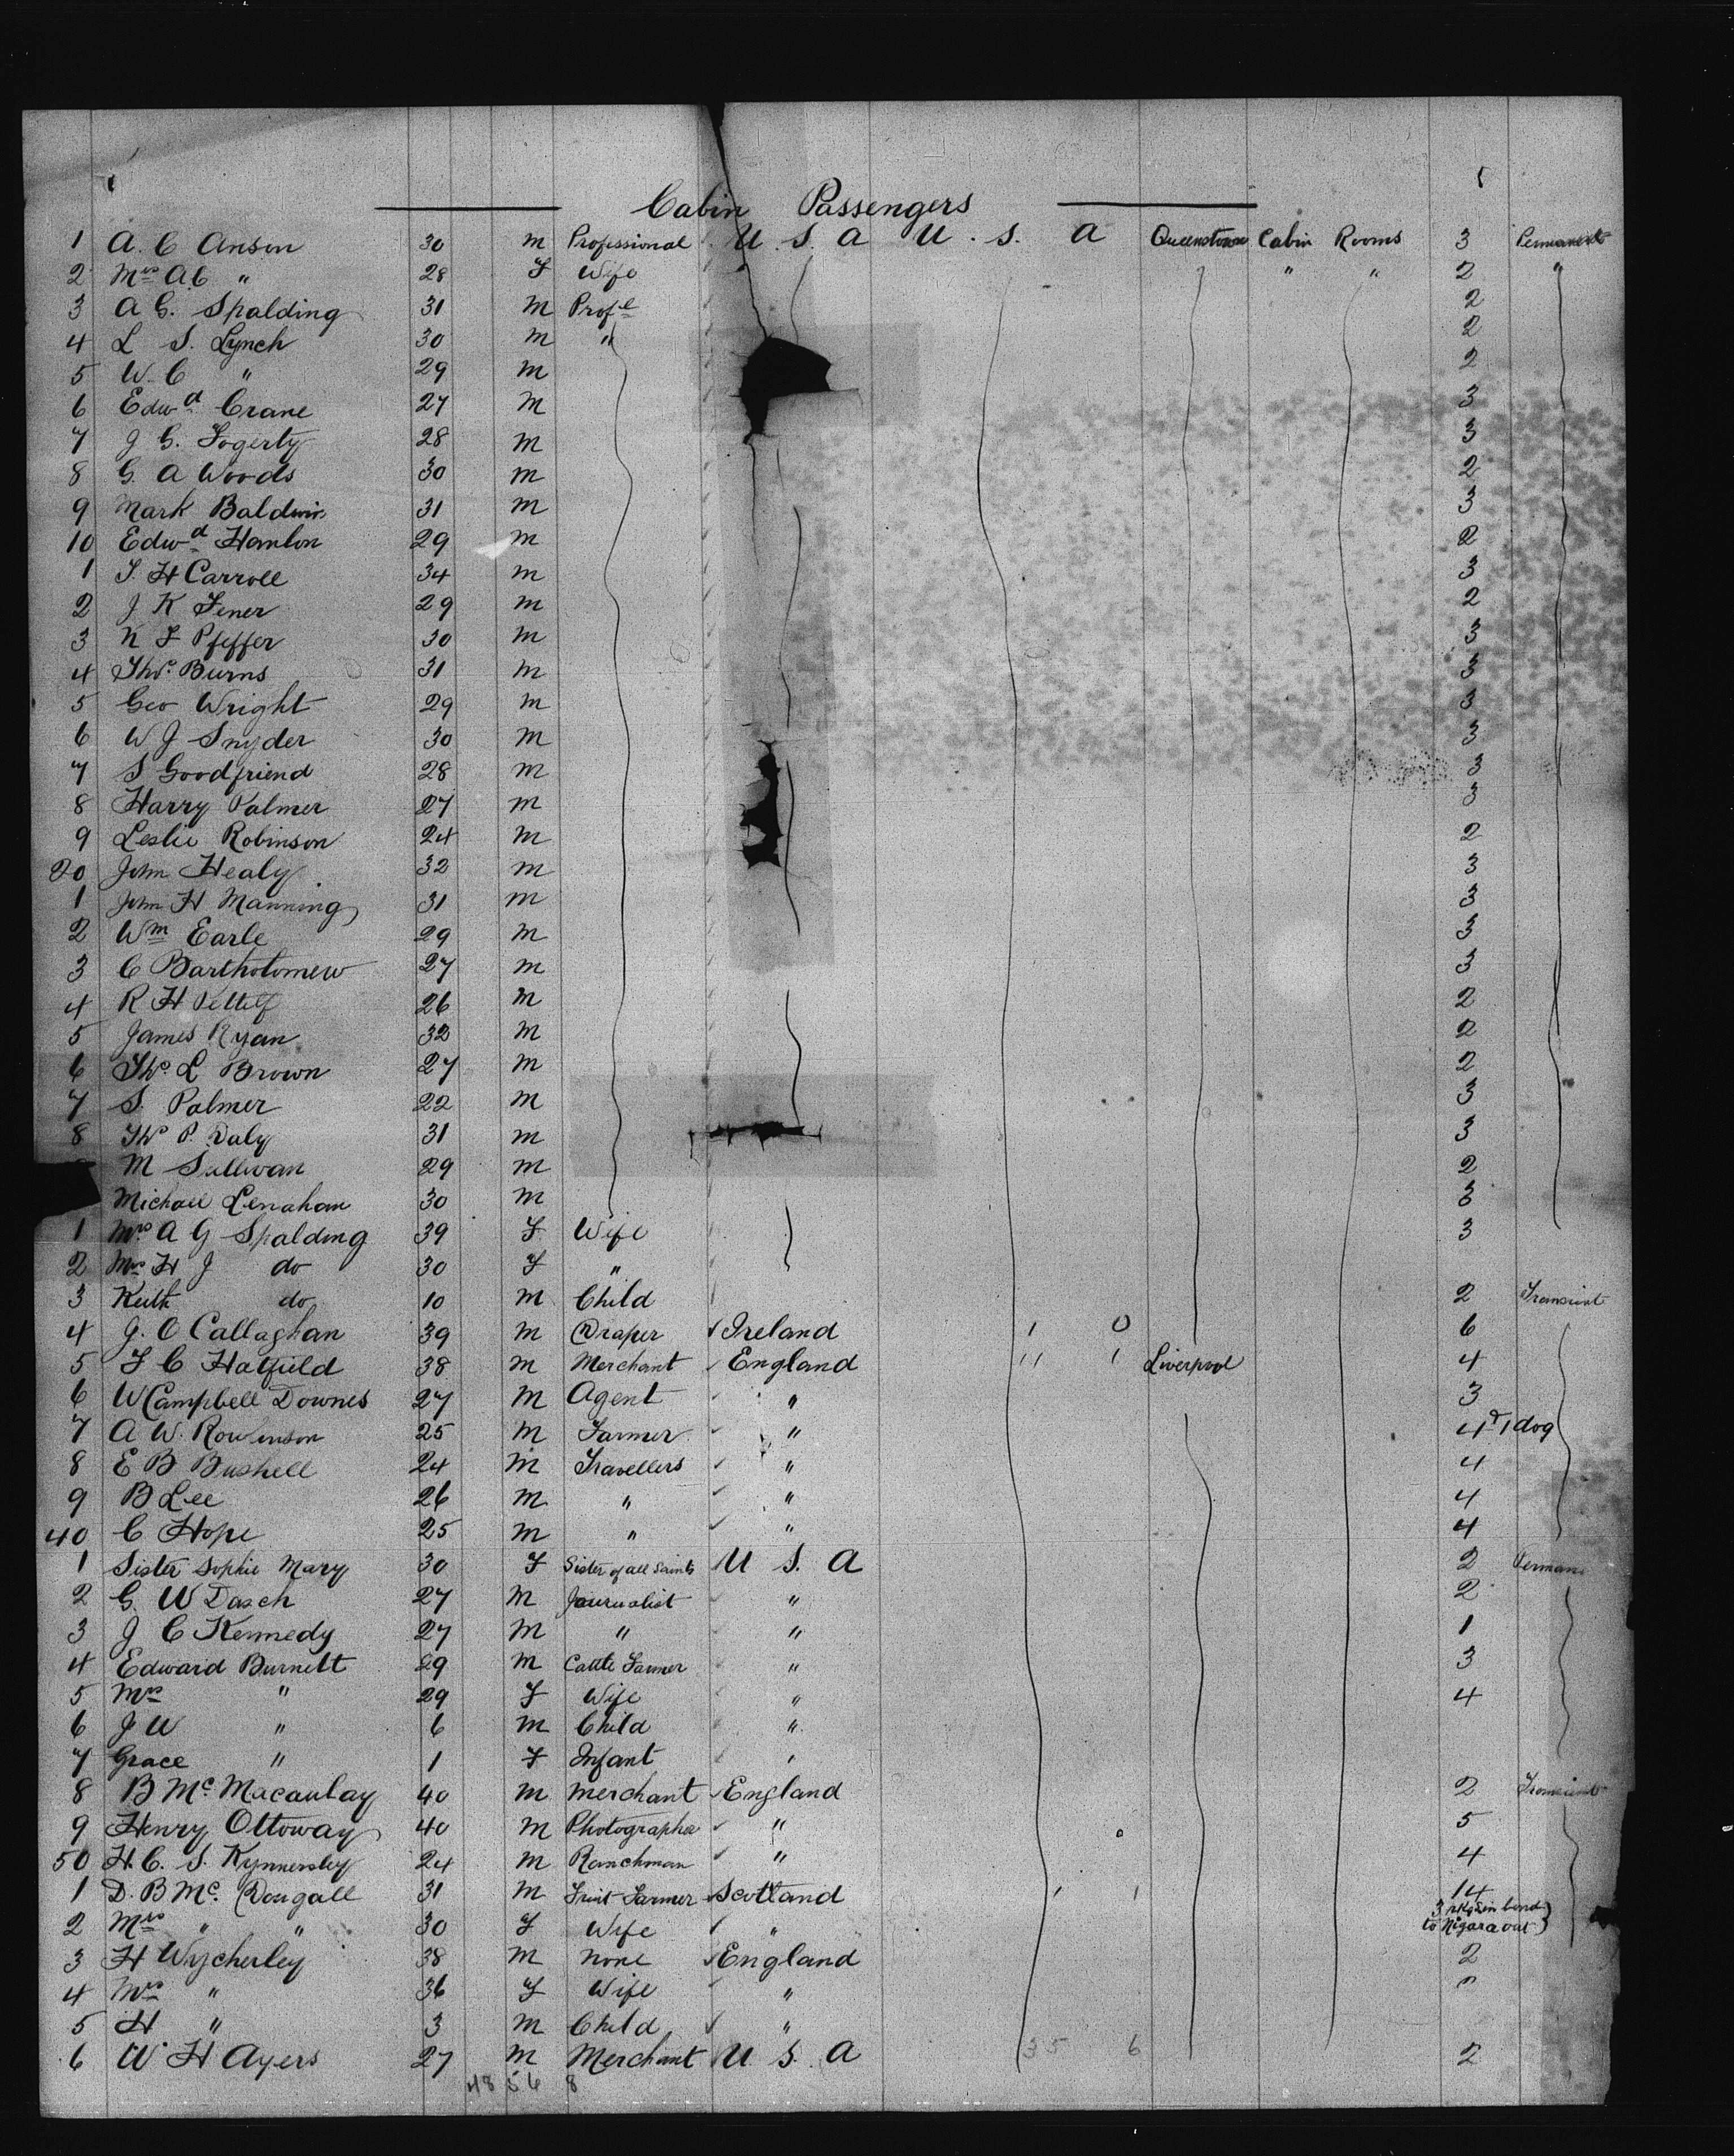 Cabin Passengers
1 A. C Anson 30 m Professional U. S. A U. S. A Queenstown Cabin Rooms 3 Permanent
2 Mrs A C " 28 F Wife " " 2 "
3 A G. Spalding 31 m Profl 2
4 L S. Lynch 30 m " 2
5 W. C " 29 m 2
6 Edwd Crane 27 m 3
7 J G. Fogerty 28 m 3
8 G. A Woods 30 m 2
9 Mark Baldwin 31 m 3
10 Edwd Hanlon 29 m 2
1 F. H Carroll 34 m 3
2 J K Fener 29 m 2
3 N F Pfeffer 30 m 3
4 Thos. Burns 31 m 3
5 Geo Wright 29 m 3
6 W J Snyder 30 m 3
7 S Goodfriend 28 m 3
8 Harry Palmer 27 m 3
9 Leslie Robinson 24 m 2
20 John Healy 32 m 3
1 John H Manning 31 m 3
2 Wm Earle 29 m 3
3 C Bartholomew 27 m 3
4 R H 26 m 2
5 James Ryan 32 m 2
6 Thos. L Brown 27 m 2
7 S. Palmer 22 m 3
8 Thos P. Daly 31 m 3
M Sullivan 29 m 2
Michael Lenahan 30 m 3
1 Mrs A G Spalding 39 F Wife 3
2 Mrs H J do 30 F "
3 Keith do 10 m Child 2 Transient
4 J. O Callaghan 39 m Draper Ireland 1 0 6
5 F C Hatfield 38 m Merchant England 11 1 Liverpool 4
6 W Campbell Downes 27 m Agent " 3
7 A W. Rowlinson 25 m Farmer " 4 & 1 dog
8 E B Bushell 24 m Travellers " 4
9 B Lee 26 m " " 4
40 C Hope 25 m " " 4
1 Sister Sophie Mary 30 F Sister of all Saints U S. A 2 Perman
2 G. W Dasch 27 m Journalist " 2
3 J C Kennedy 27 m " " 1
4 Edward Burnett 29 m Cattle Farmer " 3
5 Mrs " 29 F Wife " 4
6 J W " 6 m Child "
7 Grace " 1 F Infant "
8 B Mc Macaulay 40 m Merchant England 2 Transient
9 Henry Ottoway 40 m Photographer " 5
50 H. C. S. Kynnersley 24 m Ranchman " 4
1 D. B Mc. Dougall 31 m Fruit Farmer Scotland 1 1 14
3 pkgs in bond
2 Mrs " " 30 F Wife " to Nigara Ont
3 H Wycherley 38 m none England 2
4 Mrs " 36 F Wife "
5 H " 3 m Child "
6 W H Ayers 27 m Merchant U S. A 35 6 2
48 56 8